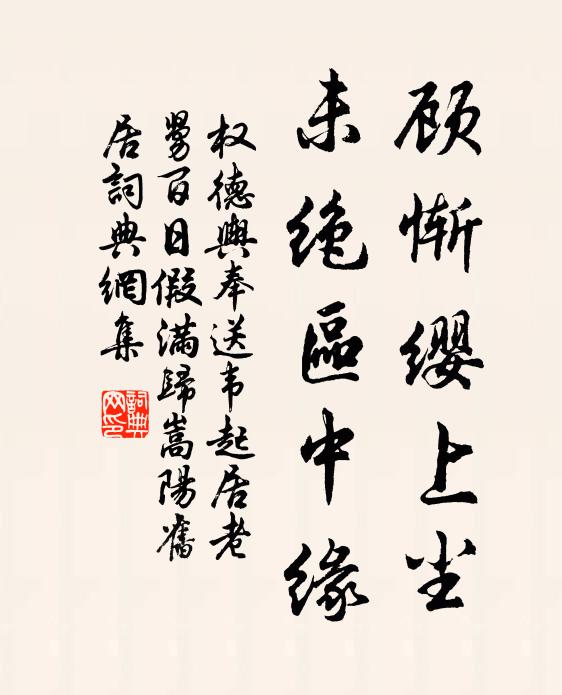 顾惭缨上尘
未绝區中缘
权德輿奉送韦起居老
舅百日假滿歸嵩陽舊
居詞典網集
詞典网印